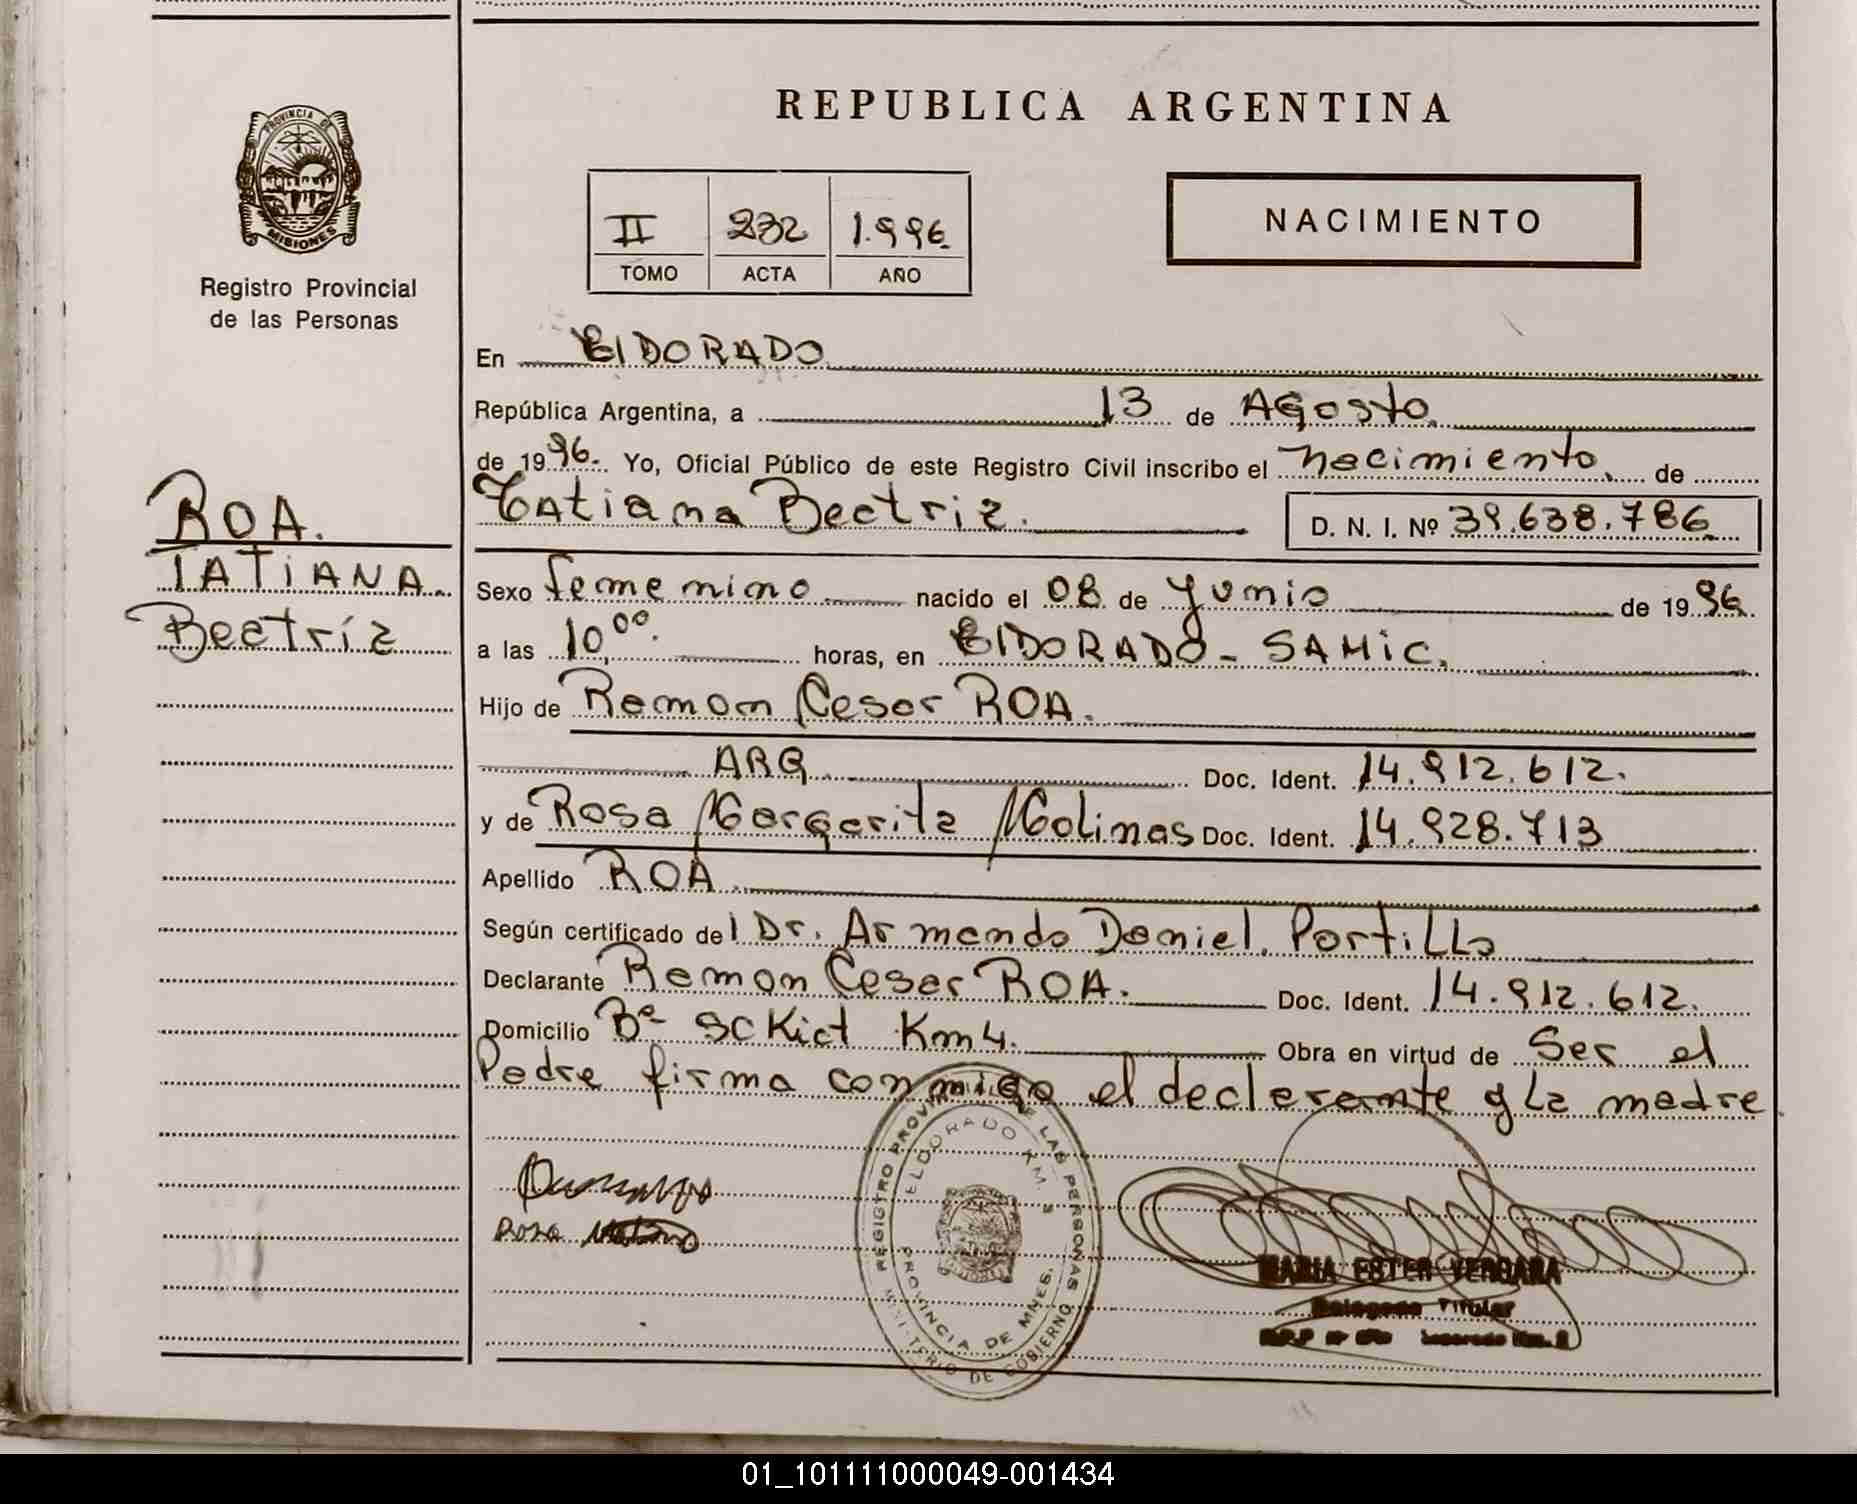 REPUBLICA ARGENTINA
PROVINCIA DE
MISIONES
Registro Provincial
de las Personas
II 232 1.996.
TOMO ACTA AÑO
NACIMIENTO
En ElDORADO
República Argentina, a 13 de Agosto.
de 1996. Yo, Oficial Público de este Registro Civil inscribo el nacimiento. de
ROA.
TATIANA.
Beatriz
Tatiana Beatriz. D. N. I. Nº 39.638.786.
Sexo femenino nacido el 08 de Junio de 1996.
a las 10,00. horas, en ElDORADO - SAMiC.
Hijo de Ramon Cesar ROA.
ARG. Doc. Ident. 14.912.612.
y de Rosa Margarita Molinas Doc. Ident. 14.928.713
Apellido ROA.
Según certificado del Dr. Armando Daniel. Portillo
Declarante Ramon Cesar ROA. Doc. Ident. 14.912.612.
Domicilio Bº Km 4. Obra en virtud de Ser el
Padre firma conmigo el declarante y la madre
Rosa
REGISTRO PROVINCIAL DE LAS PERSONAS
ELDORADO KM.
PROVINCIA DE MNES.
MINISTERIO DE GOBIERNO
MARIA ESTER VERGARA
Delegada Titular
01_101111000049-001434